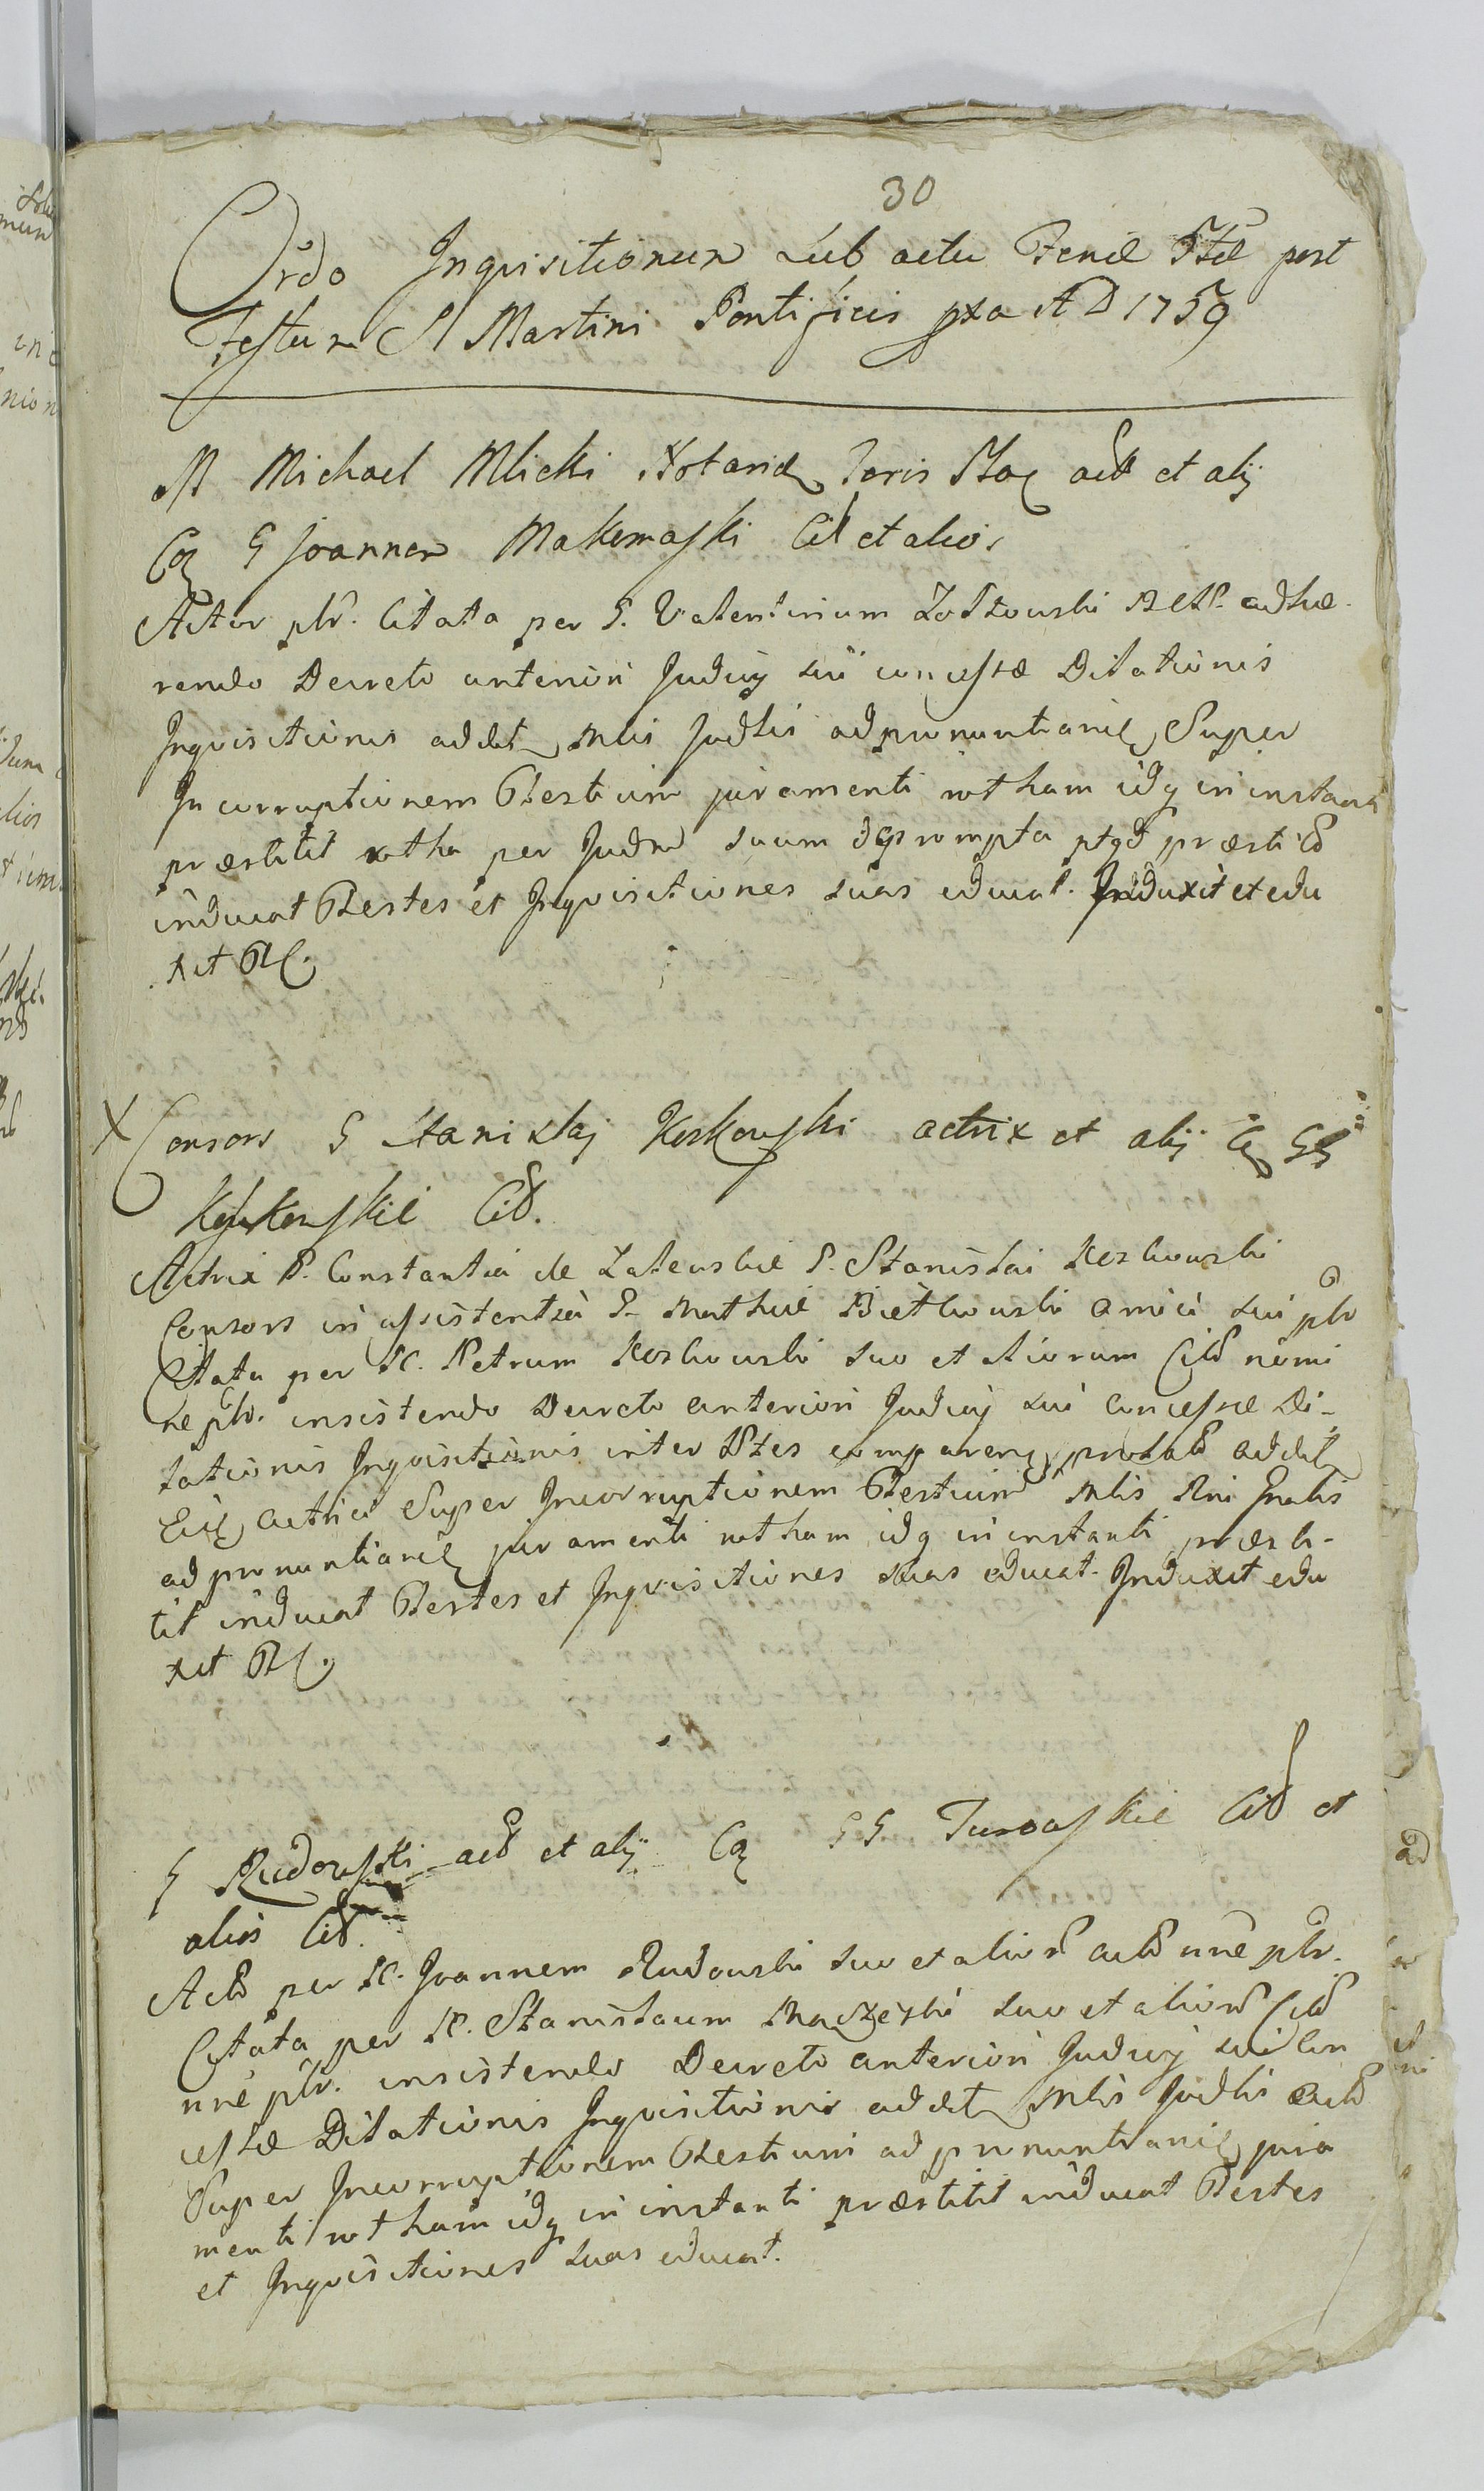 30
Ordo Inquisitionum sub actu Feriæ IItæ post
Festum S Martini Pontificis pxa A D 1759
M Michael Mlicki Notariq Terris actt et alij
Cq G Joannem Makomaski Citt et alios
Actor ptr. Citata per G. Valentinum adhæ-
rendo Decreto anteriori Judicij sui concessæ Dilationis
Inquisitionis addit, Mlis Judlis ad pronuntiand Super
Incorruptionem Testium juramenti rotham idq in instanti
præstitit rotha per Judm suum deprompta ptqd præstitd
inducat Testes et Inquisitiones suas educat. Induxit et edu
xit
X Consors G Stanislaj Koskowski actrix et alij Cq GG
Koskowskie Citd.
Actrix G. Constantia de Zalewskie G. Stanislai Koskowski
Consors in assistentia G. Mathiæ Bietkowski amici sui ptr
Citata per G. Petrum Koskowski suo et aliorum Citd nomi
ne ptr. insistendo Decreto anteriori Judicij sui concessæ Di-
lationis Inquisitionis inter Ptes comparend addit
Eid actrici Super Incorruptionem Testium Mlis
ad pronuntiand juramenti rotham idq in instanti præsti-
tit inducat Testes et Inquisitiones suas educat. Induxit edu
xit
G Rudowski actd et alij Cq GG Turowskie Citd et
alios Citd.
Actd per G. Joannem Rudowski suo et aliord actd nne ptr.
Citata per G. Stanislaum suo et aliord Citd
nne ptr. insistendo Decreto anteriori Judicij sui con
cessæ Dilationis Inquisitionis addit, Mlis Judlis actd
Super Incorruptionem Testium ad pronuntiand jura
menti rotham idq in instanti præstitit inducat Testes
et Inquisitiones suas educat.